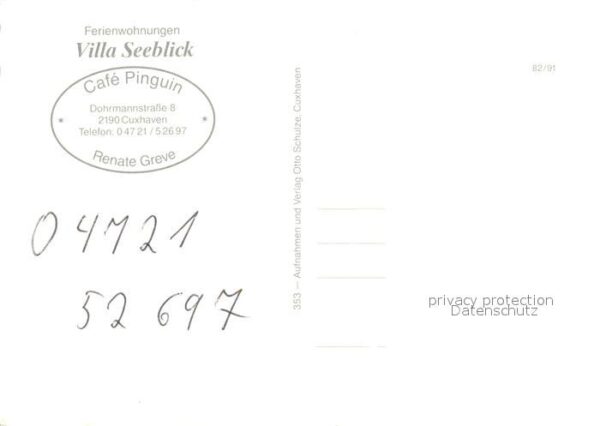 Ferienwohnungen
Villa Seeblick
Café Pinguin
Dohrmannstraße 8
2190 Cuxhaven
Telefon: 0 47 21 / 5 26 97
Renate Greve
04721
52 697
353 — Aufnahmen und Verlag Otto Schulze, Cuxhaven
82/91
privacy protection
Datenschutz